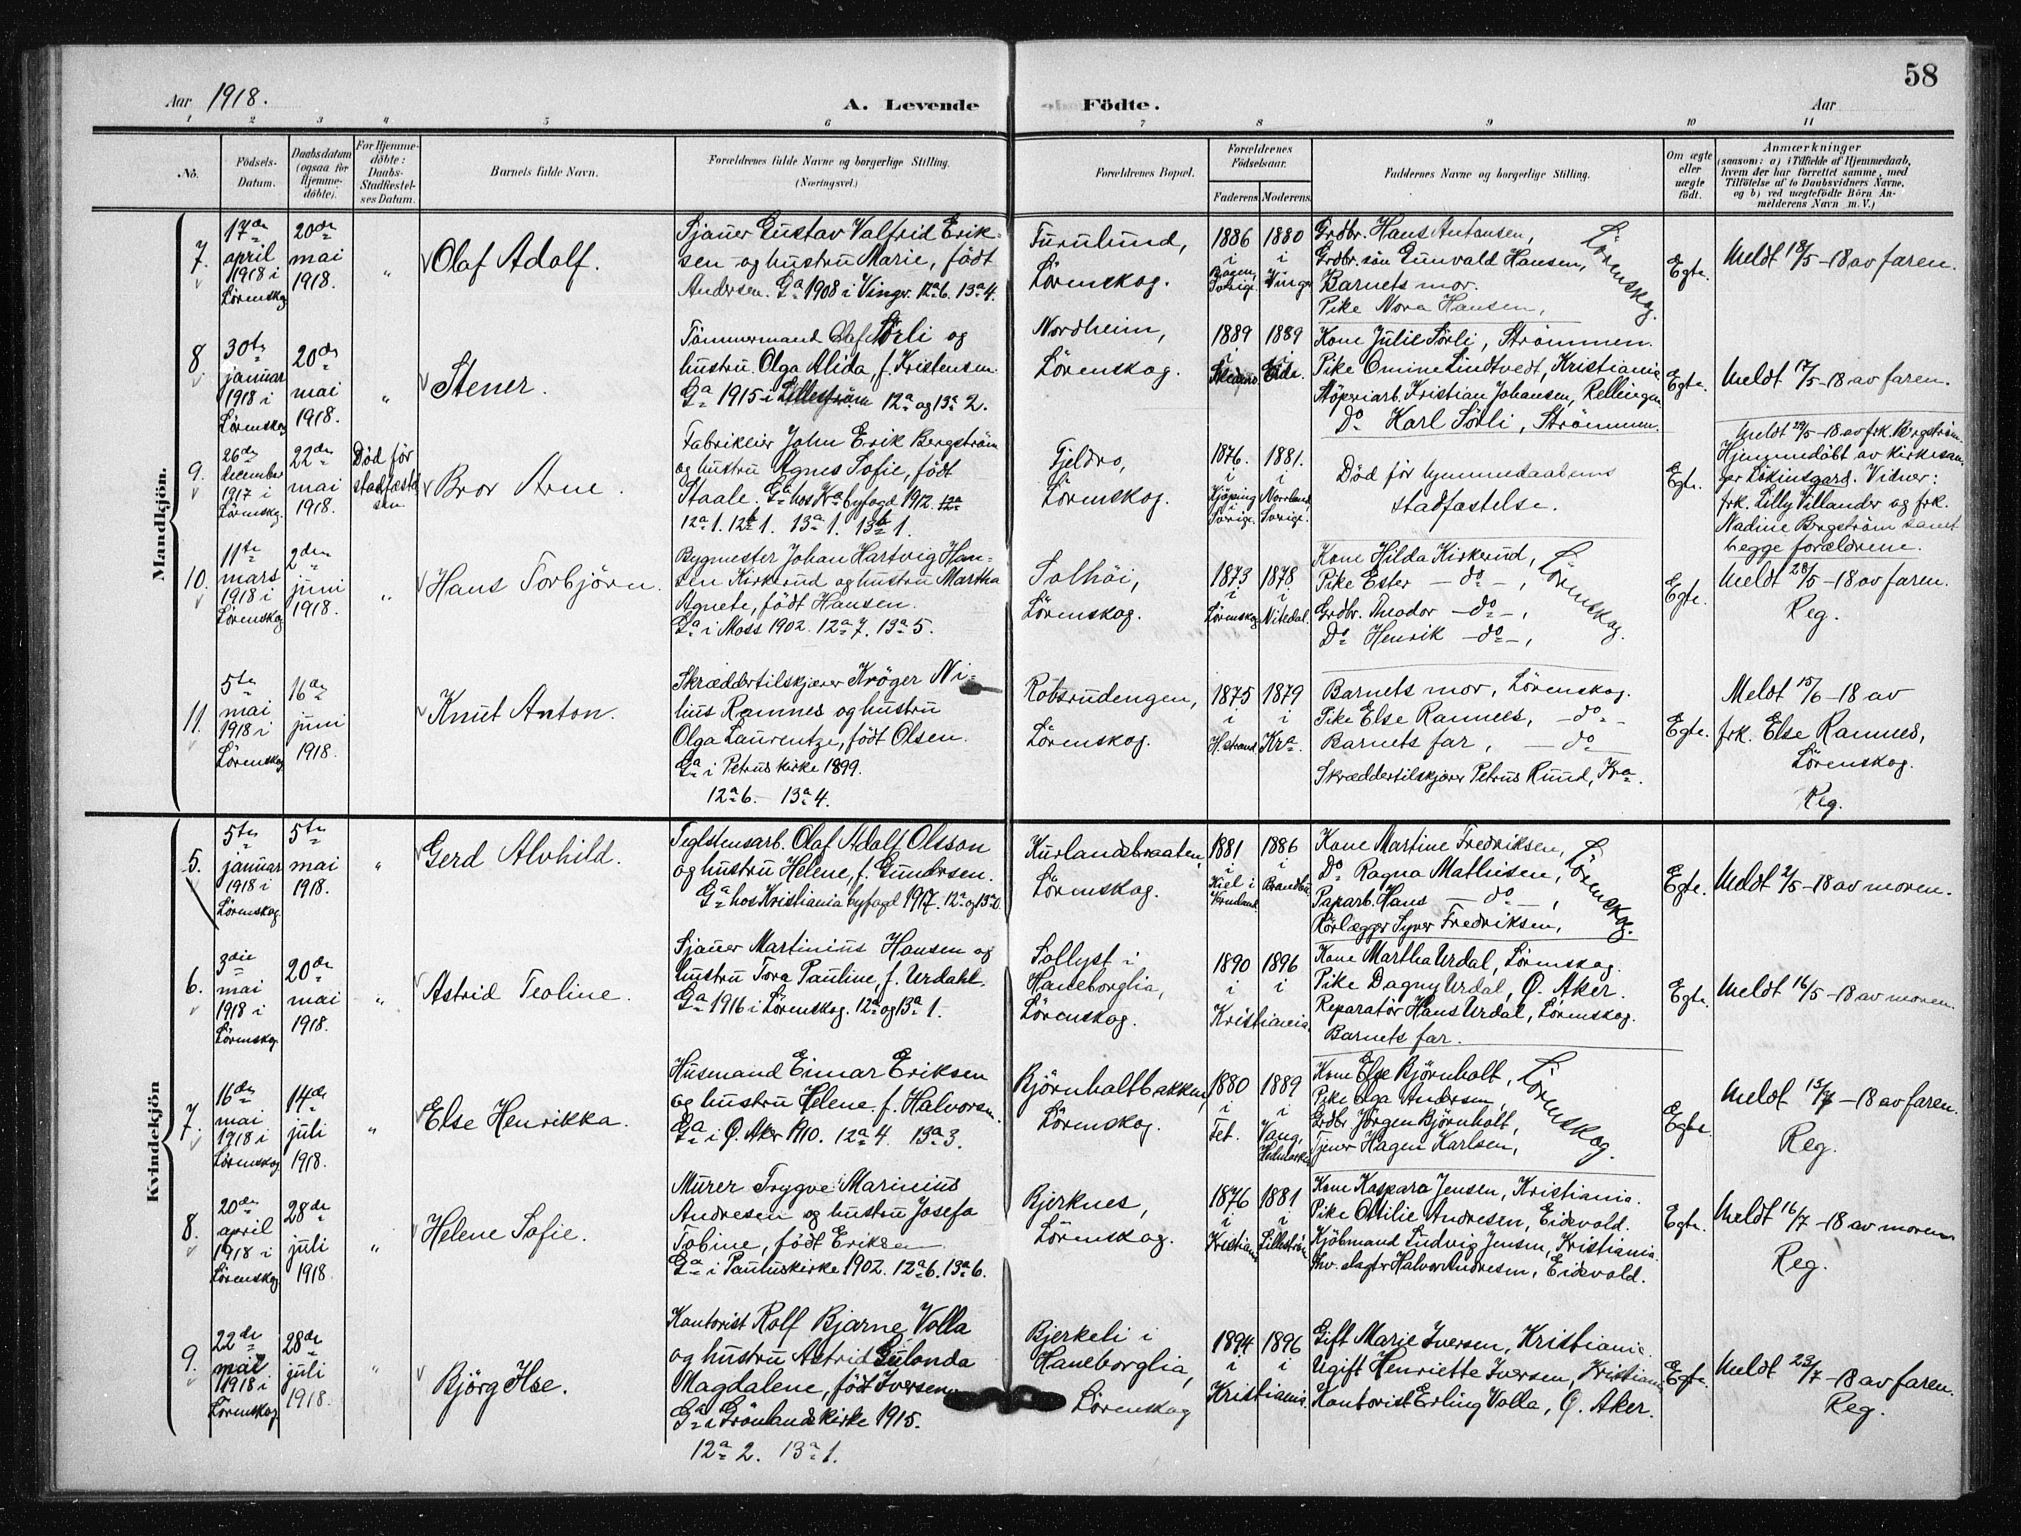 58
Aar 1918.
A. Levende Födte.
Aar
1 2 3 4 5 6 7 8 9 10 11
No.
Födsels-
Datum.
Daabsdatum
(ogsaa for
Hjemme-
döbte).
For Hjemme-
döbte:
Daabs-
Stadfæstel-
ses Datum.
Barnets fulde Navn.
Forældrenes fulde Navne og borgerlige Stilling.
(Næringsvei.)
Forældrenes Bopæl.
Forældrenes
Födselsaar.
Faderens. Moderens.
Faddernes Navne og borgerlige Stilling.
Om ægte
eller
uægte
født.
Anmærkninger
(saasom: a) i Tilfælde af Hjemmedaab,
hvem der har forrettet samme, med
Tilföielse af to Daabsvidners Navne,
og b) ved uægtefödte Börn An-
melderens Navn m. V.)
Mandkjön.
7.
17de
april
1918 i
Lörenskog
20de
mai
1918.
"
Olaf Adolf.
Sjauer Gustav Valfrid Erik-
sen og hustru Marie, født
Andersen. Ga 1908 i Vinger. 12a6. 13a4.
Furulund,
Lörenskog.
1886
i
Sverige.
1880
i
Vinger
Grdbr. Hans Antonsen,
Grdbr. søn Gunvald Hansen,
Barnets mor.
Pike Nora Hansen,
Lörenskog.
Egte.
Meldt 18/5-18 av faren.
8.
30te
januar
1918 i
Lörenskog
20de
mai
1918.
"
Stener.
Tömmermand Olaf Sørli og
hustru Olga Alida, f. Kristensen.
Ga 1915 i Lilleström 12a og 13a 2.
Nordheim,
Lörenskog.
1889
i
1889
i
Eide.
Kone Julie Sørli, Strømmen.
Pike Omine Lindtvedt, Kristiania
Støperiarb. Kristian Johansen, Rellingen.
Do Karl Sørli, Strømmen.
Egte.
Meldt 17/5-18 av faren.
9.
26de
december
1917 i
Lörenskog.
22de
mai
1918.
Död før
stadfæstel
sen.
Bror Arne.
Fabrikeier John Erik Bergström
og hustru Agnes Sofie, født
Staale. Ga hos Kra byfogd 1912. 12a
12a 1. 12b 1. 13a 1. 13b 1.
Fjeldro,
Lörenskog.
1876.
i
Kjöping
Sverige.
1881.
i
Norrland
Sverige.
Död før hjemmedaabens
stadfæstelse.
Egte.
Meldt 29/5-18 av frk. Bergström.
Hjemmedøbt av kirkesan-
ger Lökensgard. Vidner:
frk. Lilly Villander og frk.
Nadine Bergström samt
begge forældrene.
10.
11te
mars
1918 i
Lörenskog
2den
juni
1918.
"
Hans Torbjörn.
Bygmester Johan Hartvig Han-
sen Kirkerud og hustru Martha
Agnete, født Hansen.
Ga i Moss 1902. 12a 7. 13a 5.
Solhöi,
Lörenskog.
1873
i
Lörenskog
1878.
i
Nitedal.
Kone Hilda Kirkerud,
Pike Ester -do-,
Grdbr. Theodor -do-,
Do Henrik -do-,
Lörenskog.
Egte.
Meldt 28/5-18 av faren.
Reg.
11.
5te
mai
1918 i
Lörenskog
16de
juni
1918.
Knut Anton.
Skræddertilskjærer Kröger Ni-
lius Ramnes og hustru
Olga Laurentze, født Olsen.
Ga i Petrus kirke 1899.
12a 6. - 13a 4.
Robsrudengen,
Lörenskog.
1875
i
H.strand
1879
i
Kra.
Barnets mor, Lörenskog.
Pike Else Ramnes, -do-
Barnets far, -do-
Skræddertilskjærer Petrus Ruud, Kra.
Egte.
Meldt 15/6-18 av
frk. Else Ramnes,
Lörenskog.
Reg.
Kvindekjön
5.
5te
januar
1918 i
Lörenskog.
5te
mai
1918.
"
Gerd Alvhild.
Teglstensarb. Olaf Adolf Olsson
og hustru Helene, f. Gundersen.
Ga hos Kristiania byfogd 1917. 12a og 13a 0.
Kurlandsbraaten,
Lörenskog.
1881
i
Kiel i
Vermland.
1886
i
Brandbu
Kone Martine Fredriksen,
Do Ragna Mathisen,
Paparb. Hans -do-,
Rörlægger Syver Fredriksen,
Lörenskog.
Egte.
Meldt 2/5-18 av moren.
6.
3die
mai
1918 i
Lörenskog
20de
mai
1918.
"
Astrid Teoline.
Sjauer Martinius Hansen og
hustru Tora Pauline, f. Urdahl.
Ga 1916 i Lörenskog. 12a og 13a 1.
Sollyst i
Haneborglia,
Lörenskog.
1890
i
1896
i
Kristiania
Kone Martha Urdal, Lörenskog.
Pike Dagny Urdal, Ø. Aker.
Reparatör Hans Urdal, Lörenskog.
Barnets far.
Egte.
Meldt 16/5-18 av moren.
7.
16de
mai
1918 i
Lörenskog
14de
juli
1918.
"
Else Henrikka.
Husmand Einar Eriksen
og hustru Helene f. Halvorsen
Ga i Ø. Aker 1910. 12a 4. 13a 3.
Björnholtbakken,
Lörenskog.
1880
i
Fet.
1889
i
Vang,
Hedmarken
Kone Else Björnholt,
Pike Olga Andersen,
Grdbr Jörgen Björnholt,
Tjener Hagen Karlsen,
Lörenskog.
Egte.
Meldt 15/7-18 av faren.
Reg.
8.
20de
april
1918 i
Lörenskog
28de
juli
1918.
"
Helene Sofie.
Murer Trygve Marinius
Andresen og hustru Josefa
Tobine, født Eriksen
Ga i Pauluskirke 1902. 12a 6. 13a 6.
Bjerknes,
Lörenskog.
1876
i
Kristiania
1881
i
Lilleström
Kone Kaspara Jensen, Kristiania.
Pike Ottilie Andresen, Eidsvold.
Kjöbmand Ludvig Jensen, Kristiania.
slagter Halvor Andresen, Eidsvold.
Egte.
Meldt 16/7-18 av moren
Reg.
9.
22de
mai
1918 i
Lörenskog
28de
juli
1918.
"
Björg Ilse.
Kontorist Rolf Bjarne Volla
og hustru Astrid Gulonda
Magdalene, født Iversen.
Ga i Grönlands kirke 1915.
12a 2. 13a 1.
Bjerkeli i
Haneborglia,
Lörenskog
1894
i
1896
i
Kristiania.
Gift Marie Iversen, Kristiania.
Ugift Henriette Iversen, Kristiania
Kontorist Erling Volla, Ø. Aker.
Egte.
Meldt 23/7-18 av faren.
Reg.